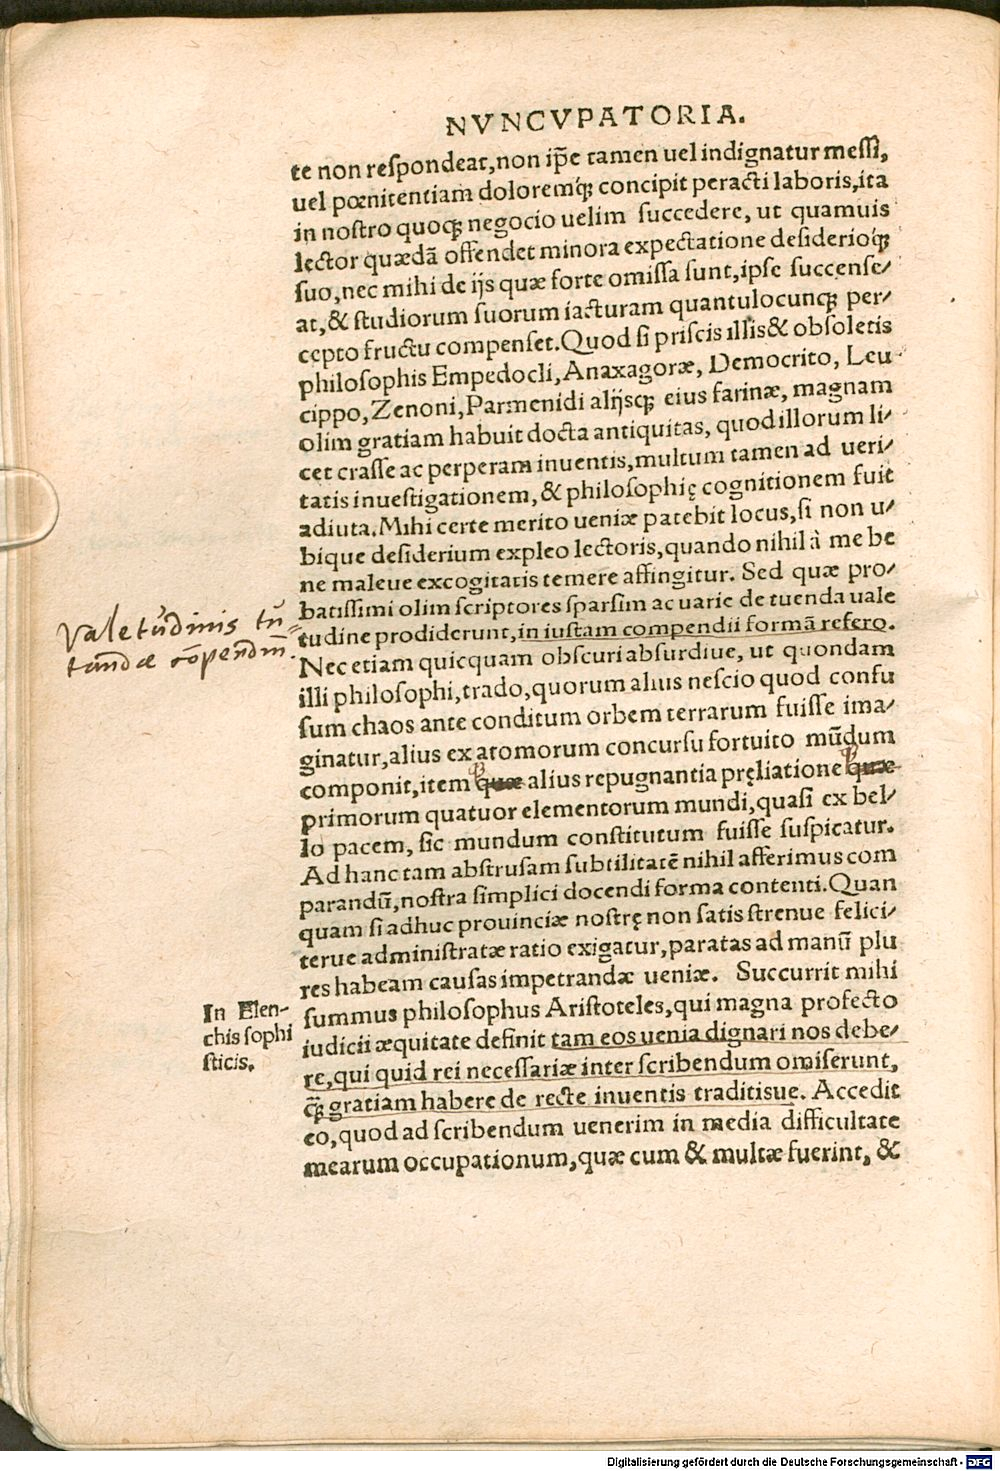 NVNCVPATORIA.
te non respondeat, non ip̃e tamen uel indignatur messi,
uel pœnitentiam doloremq́ꝫ concipit peracti laboris, ita
in nostro quoqꝫ negocio uelim succedere, ut quamuis
lector quædã offendet minora expectatione desiderioq́ꝫ
suo, nec mihi de ijs quæ forte omissa sunt, ipse succense/
at, & studiorum suorum iacturam quantulocunqꝫ per/
cepto fructu compenset. Quod si priscis illis & obsoletis
philosophis Empedocli, Anaxagoræ, Democrito, Leu
cippo, Zenoni, Parmenidi alijsqꝫ eius farinæ, magnam
olim gratiam habuit docta antiquitas, quod illorum li/
cet crasse ac perperam inuentis, multum tamen ad ueri/
tatis inuestigationem, & philosophię cognitionem fuit
adiuta. Mihi certe merito ueniæ patebit locus, si non u/
bique desiderium expleo lectoris, quando nihil à me be
ne maleue excogitatis temere affingitur. Sed quæ pro/
batissimi olim scriptores sparsim ac uarie de tuenda uale
tudine prodiderunt, in iustam compendii formã refero.
Valetudinis tu=
tandæ cõpendiũ.
Nec etiam quicquam obscuri absurdiue, ut quondam
illi philosophi, trado, quorum alius nescio quod confu
sum chaos ante conditum orbem terrarum fuisse ima/
ginatur, alius ex atomorum concursu fortuito mũdum
componit, item quæ alius repugnantia pręliatione quæ
primorum quatuor elementorum mundi, quasi ex bel/
lo pacem, sic mundum constitutum fuisse suspicatur.
Ad hanc tam abstrusam subtilitatẽ nihil afferimus com
parandũ, nostra simplici docendi forma contenti. Quan
quam si adhuc prouinciæ nostrę non satis strenue felici/
terue administratæ ratio exigatur, paratas ad manũ plu
res habeam causas impetrandæ ueniæ. Succurrit mihi
summus philosophus Aristoteles, qui magna profecto
iudicii æquitate definit tam eos uenia dignari nos debe/
re, qui quid rei necessariæ inter scribendum omiserunt,
q̃ꝫ gratiam habere de recte inuentis traditisue. Accedit
eo, quod ad scribendum uenerim in media difficultate
mearum occupationum, quæ cum & multæ fuerint, &
In Elen-
chis sophi
sticis.
Digitalisierung gefördert durch die Deutsche Forschungsgemeinschaft - DFG